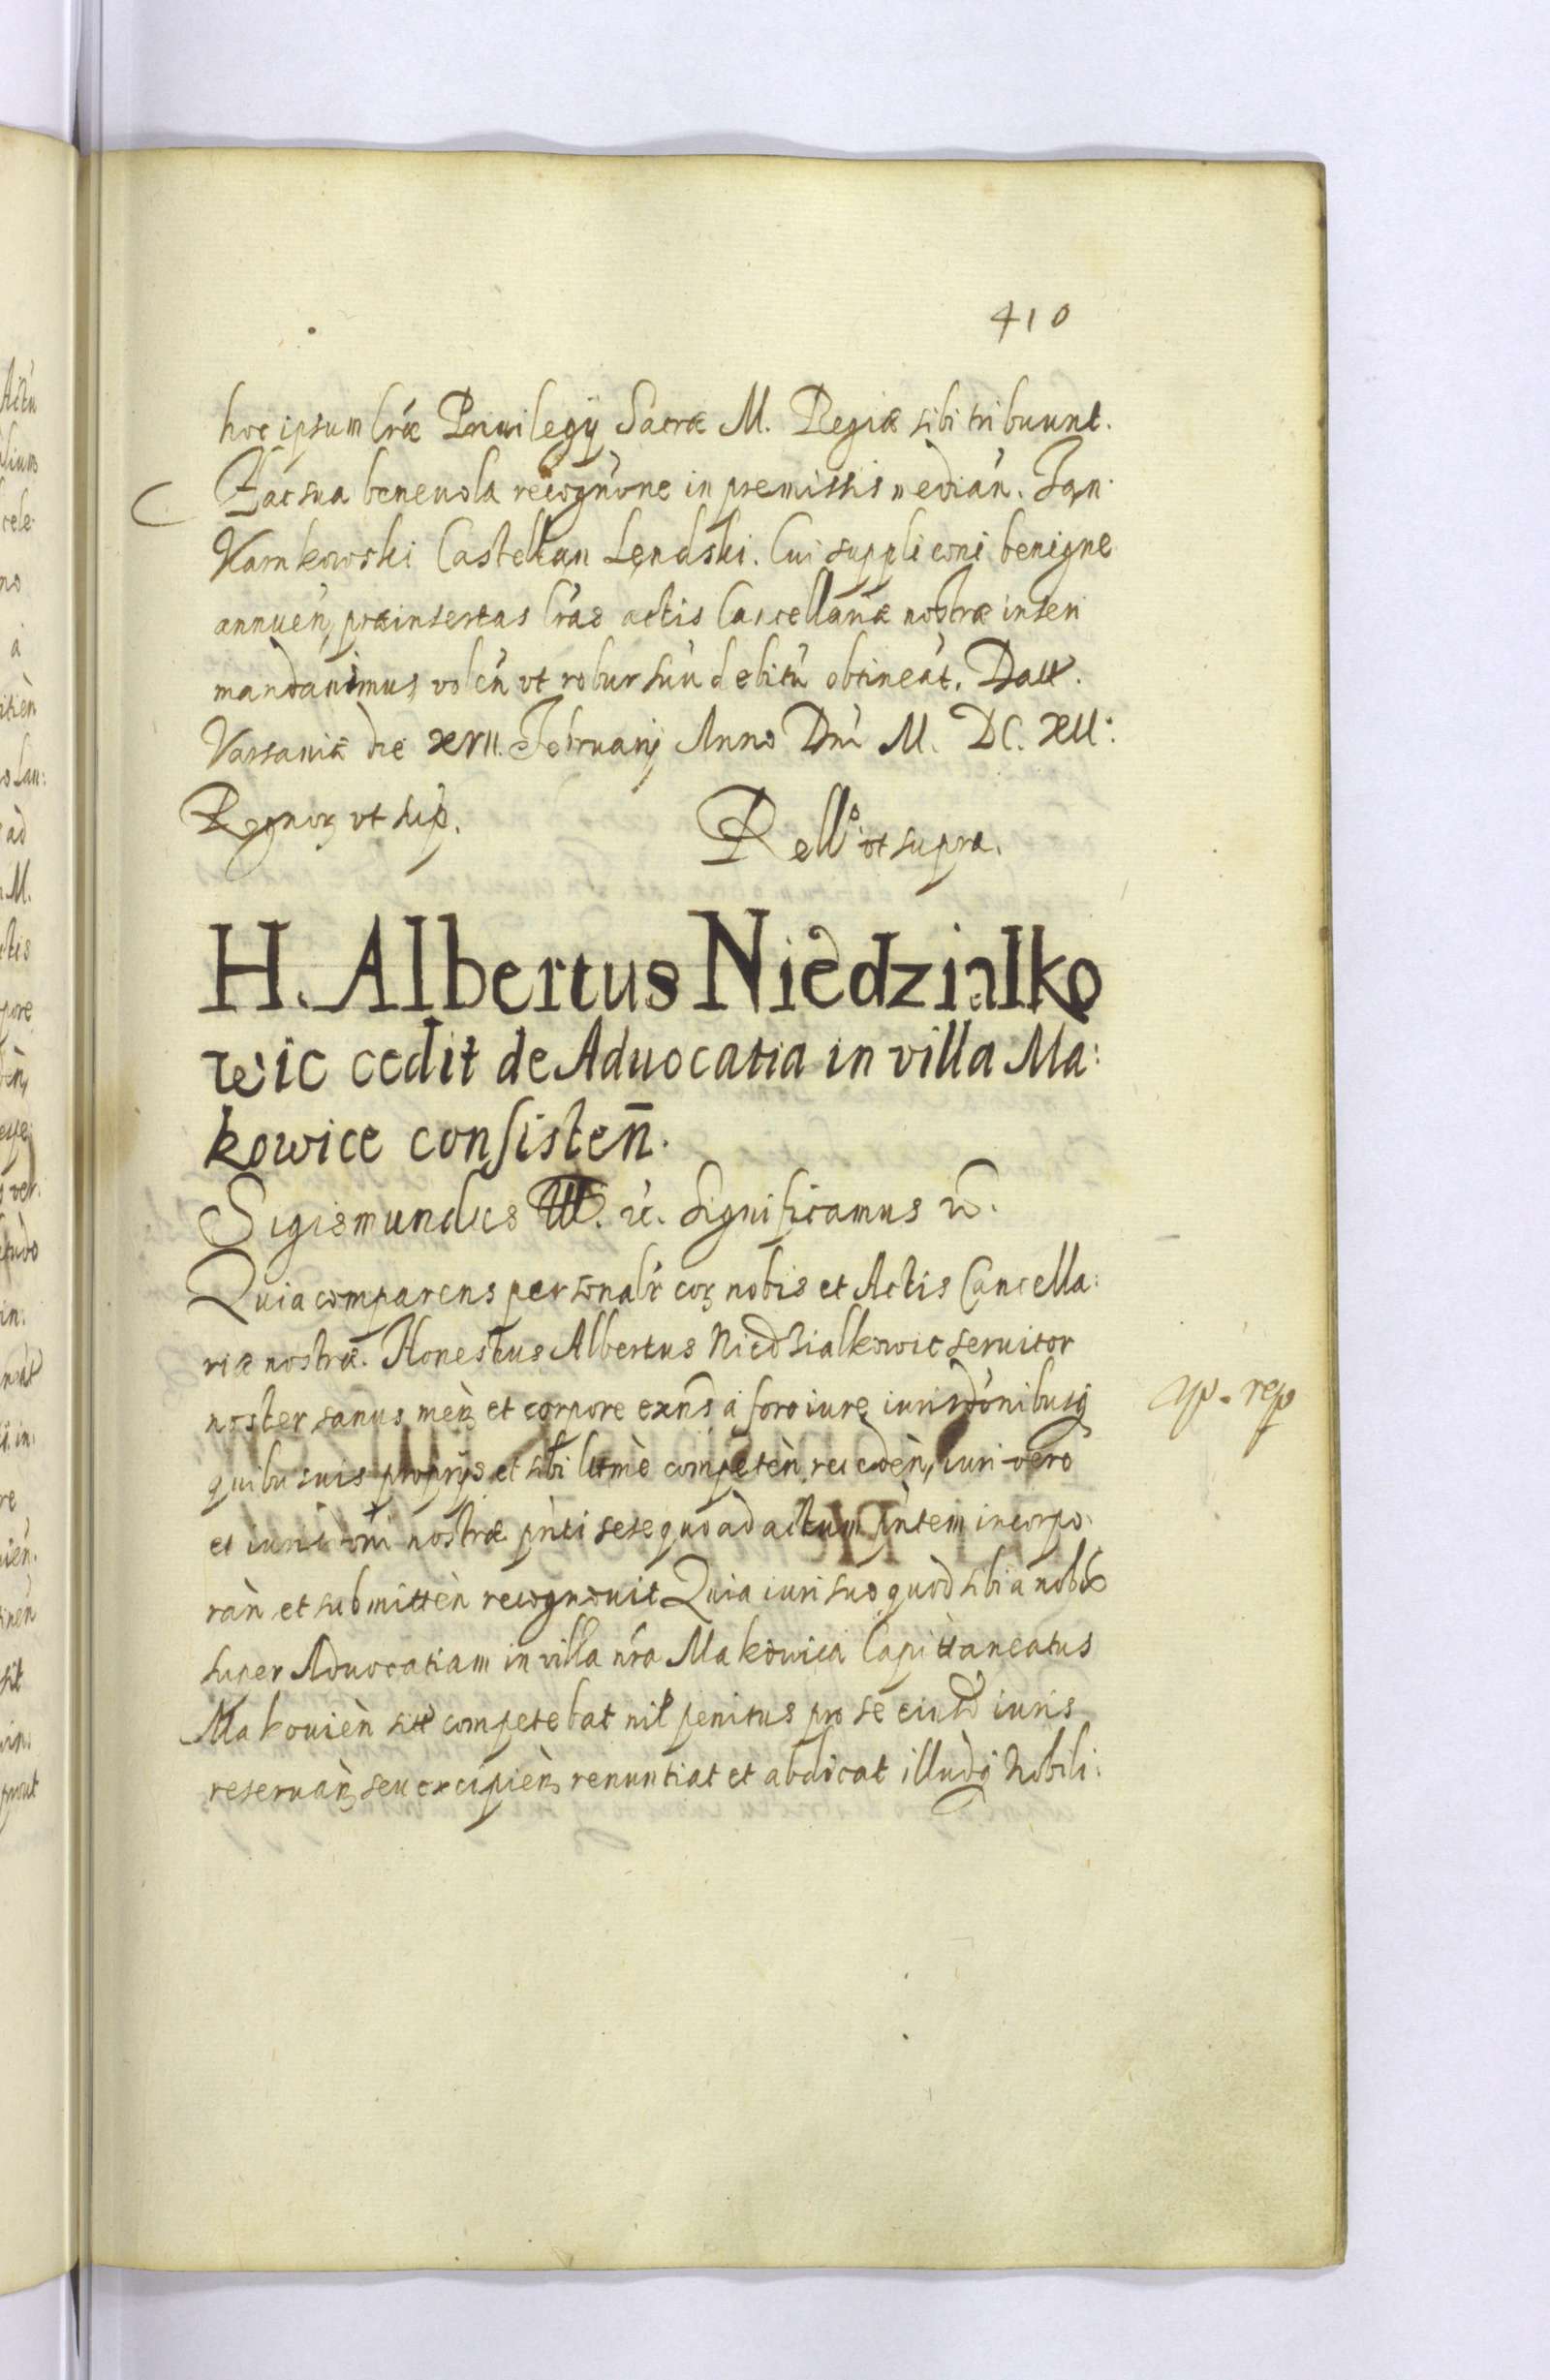 410
hoc ipsum lr̃æ Priuilegÿ Sacræ M. Regiæ sibi tribuunt.
Hac sua beneuola recogn̄one in premissis median̄. Jan
Karnkowski Castellan Lendski. Cui supplic̄oni benigne
annuen̄, præinsertas lr̃as actis Cancellariæ nostræ inseri
mandauimus, volen̄ vt robur suū debitū obtineat̄. Datt.
Varsauiæ die XVII. Februarij Anno Dn̄i M. DC. XII:
Regnorꝝ vt sup̄.
Rell.º vt supra.
H. Albertus Niedzialko
wic cedit de Aduocatia in villa Ma:
kowice consisten̄.
Sigismundus III. &c̄. Significamus &c̄.
Quia comparens personalr̄ corꝫ nobis et Actis Cancella:
riæ nostræ. Honestus Albertus Niedzialkowic seruitor
noster sanus men̄ et corpore exn̄s à foro iure, iurisd̄onibusq̨
quibusuis proprijs et sibi l̄tmè competen̄ receden̄, iuri vero
et iurisd̄oni nostræ pn̄ti sese quoàd actum pn̄tem incorpo:
ran̄ et submitten̄ recognouit Quia iuri suo quod sibi a nobis
super Aduocatiam in villa nr̄a Makowica Capittaneatus
Makouien̄ sitt competebat nil penitus pro se eiusd̄ iuris
reseruan̄, seu excipien̄, renuntiat et abdicat illudq̨ Nobili: